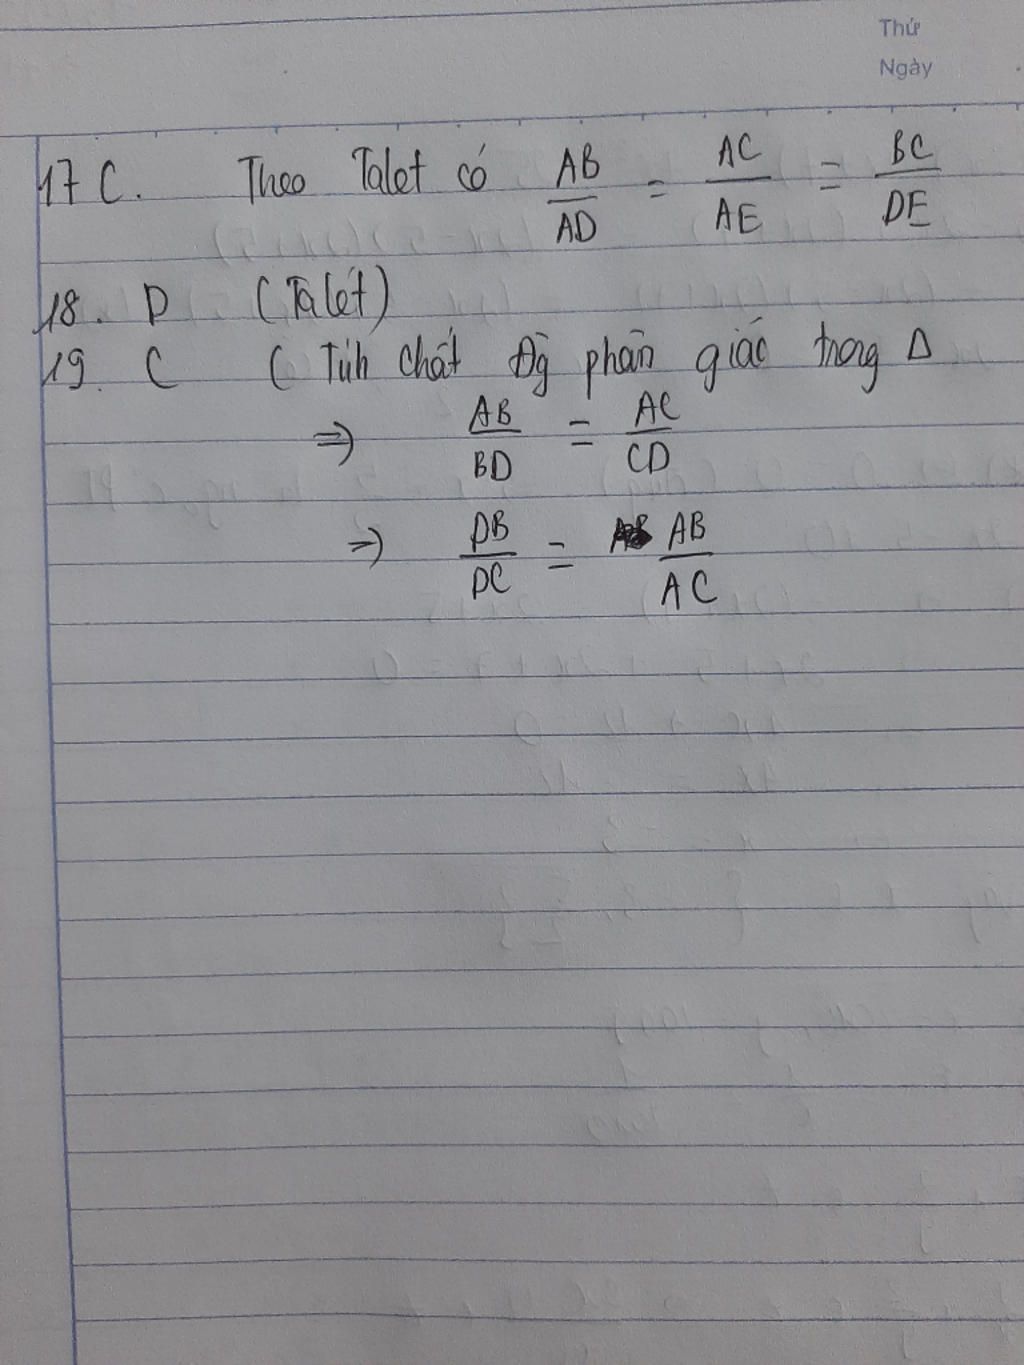 Thứ
Ngày
17 C. Theo Talet có AB/AD = AC/AE = BC/DE
18. D (Talét)
19. C ( Tính chất đg phân giác trong Δ
=> AB/BD = AC/CD
=> DB/DC = AB/AC